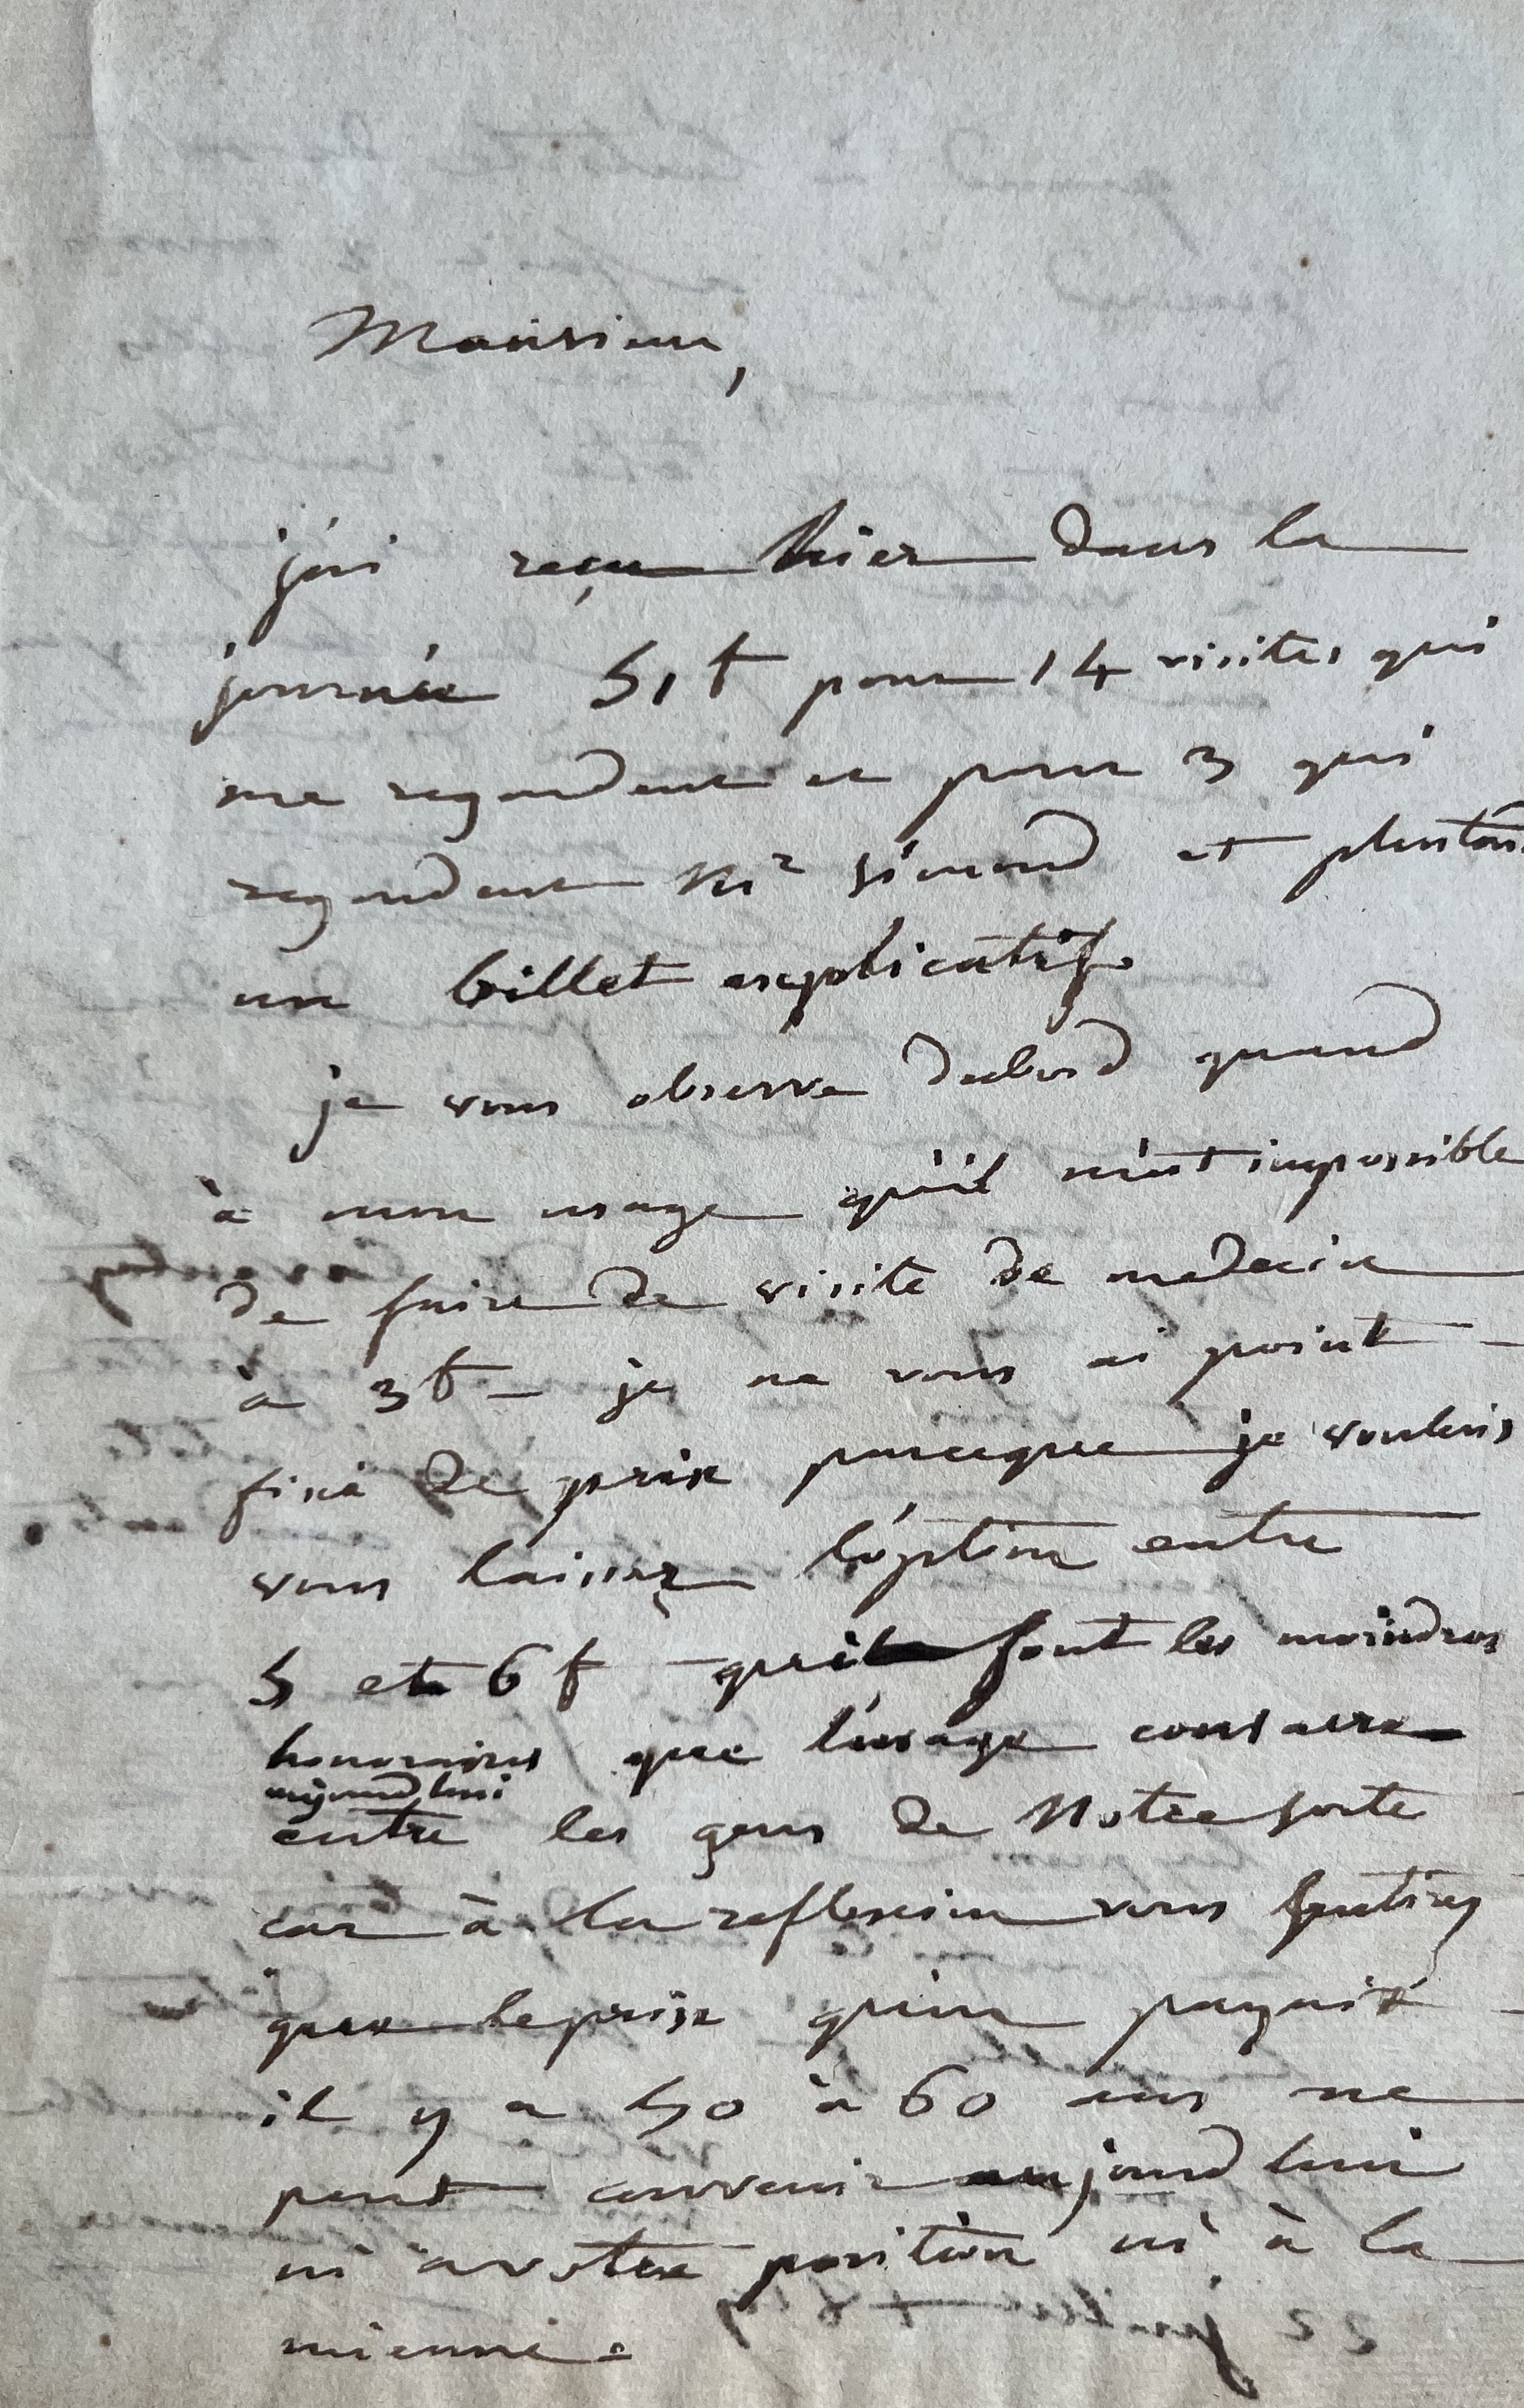 Monsieur,
j'ai reçu hier dans la
journée 51 f pour 14 visites qui
me regardent et pour 3 qui
regardent Mr simond et plustard
un billet explicatif.
je vous observe dabord quand
à mon usage qu'il m'est impossible
de faire de visite de medecin
à 3 f — je ne vous ai point —
fixé de prix parceque je voulais
vous laisser l'option entre
5 et 6 f — qui sont les moindres
honoraires que l'usage consacre
aujourd'hui
entre les gens de Notre sorte
car à la reflexion vous sentirez
que le prix qu'on payait
il y a 50 à 60 ans ne
peut convenir aujourd'hui
ni à votre position ni à la
mienne.